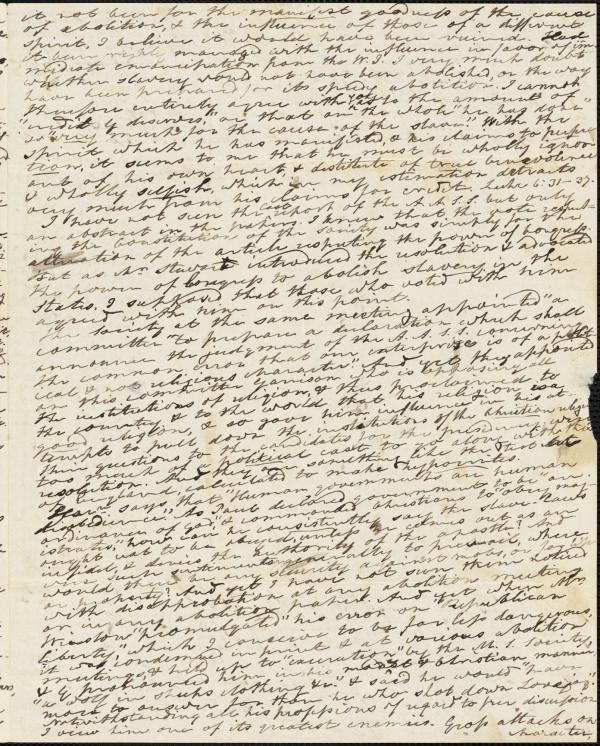 it not been for the manifest goodness of the cause
of abolition, & the influence of those of a different
spirit, I believe it would have been ruined. Had
it been rightly managed with the influence in favor of im-
mediate emancipation from the W.I. I very much doubt
whether slavery would not have been abolished, or the way
have been prepared for its speedy abolition. I cannot
therefore entirely agree with you as to the amount of
"credit he deserves," or that on the whole he has done
so "very much for the cause of the slave." With the
spirit which he has manifested, & his claims to perfec-
tion, it seems to me that he must be wholly ignor-
ant of his own heart, & destitute of true benevolence
& wholly selfish, which in my estimation detracts
very much from his claims for credit. Luke 6:31-37.
I have not seen the report of the A.A.S.S. but only
an abstract in the papers. I knew that the vote respect-
ing the Constitution of the society was simply for the
alteration of the article respecting the power of Congress.
But as Mr Stewart introduced the resolution & advocated
the power of Congress to abolish slavery in the
States, I supposed that those who voted with him
agreed with him on this point.
The society at the same meeting appointed "a
committee to prepare a declaration which shall
announce the judgment of the A.A.S.S. concerning
the common error that our enterprize is of a polit-
ical & not religious character." And yet they appointed
on this committee Garrison who is opposing all
the institutions of religion, & thus proclaimed to
the country, & to the world that his religion was
good religion, & so gave him influence in his at-
tempts to pull down the institutions of the Christian religion.
Their questions to the candidates for the presidency were
too much of a political cast to go along with this
resolution. And they are something like the test
of England, calculated to make hypocrites.
says, that "Human governments are human
disobedience." As Paul declared government to be "an
ordinance of God," & commanded Christians to "obey mag-
istrates," how can he consistently say the slave laws
ought not to be obeyed, unless he comes out as an
infidel, & denies the authority of the apostle? And
were such sentiments generally to prevail, where
would there be any security against mobs, or for life
or property? And yet I have not seen them noticed
with disapprobation at any abolition meeting
or in any abolition paper. And yet when Mr
Winslow "promulgated" his error on "republican
liberty," which I conceive to be far less dangerous,
it was condemned in print & at various abolition
meetings, & held up to "execration" by the M.S. Society,
& G. pronounced him in his & Christian manner
"a wolf in sheeps clothing &c." & said he would "have
more to answer for than he who shot down Lovejoy."
Notwithstanding all his professions of regard to free discussion
I view him one of its greatest enemies. Gross attacks on
character,